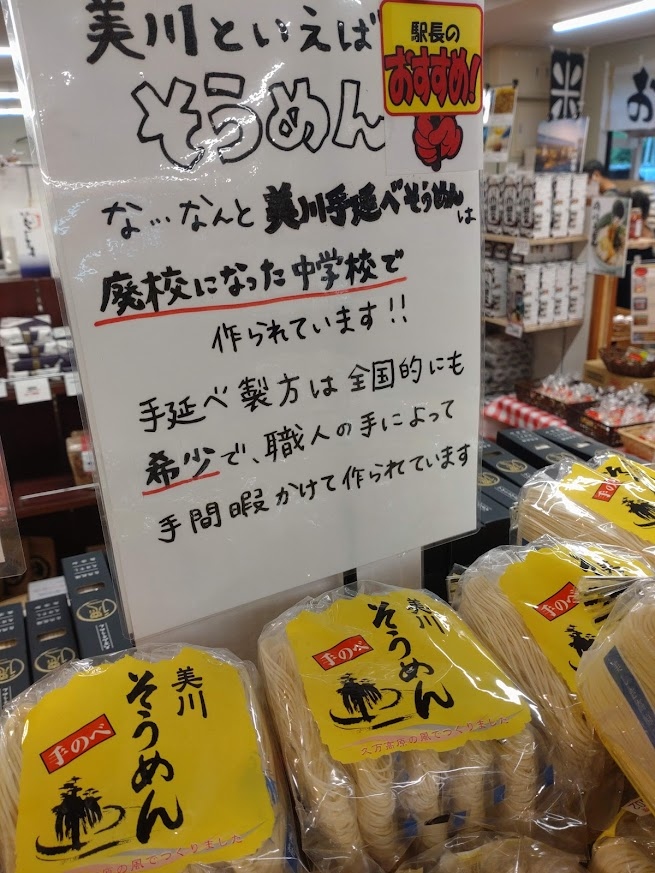 美川といえば
そうめん
駅長の
おすすめ!
な…なんと美川手延べそうめんは
廃校になった中学校で
作られています!!
手延べ製方は全国的にも
希少で、職人の手によって
手間暇かけて作られています
米
お
美川
そうめん
手のべ
の風でつくりました
美川
そうめん
手のべ
久万高原の風でつくりました
手のべ
手のべ